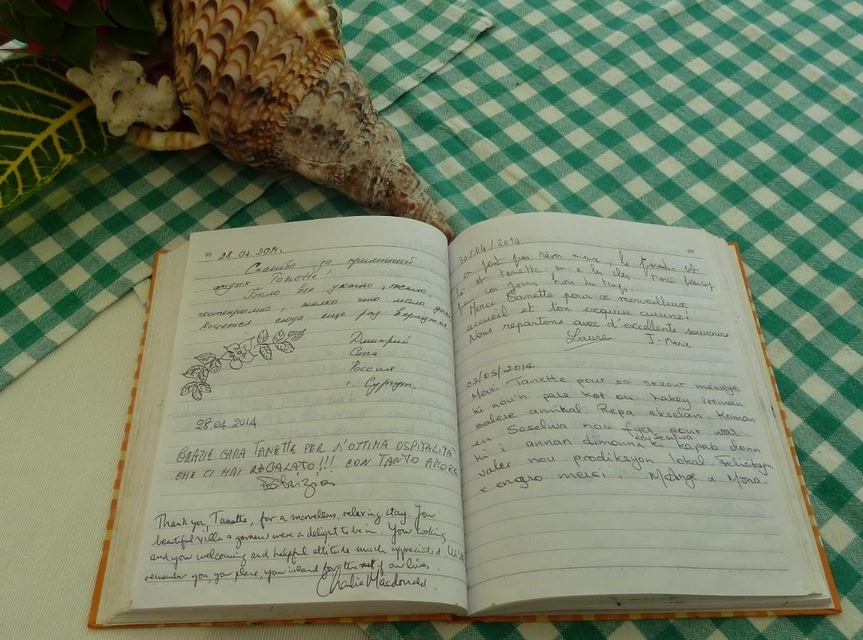 28.04.2014.
Спасибо за приятный
отдых Tanette!
Было все уютно, жаль,
только это мало дней
Хочется сюда еще раз вернуться
Дмитрий
Саша
Россия
г. Сургут.
28.04.2014
GRAZIE CARA TANETTE PER L'OTTIMA OSPITALITÀ
CHE CI HAI REGALATO!!! CON TANTO AMORE
Patrizia
Thank you, Tanette, for a marvellous, relaxing stay. Your
beautiful villa & gardens were a delight to be in. Your cooking
and your welcoming and helpful attitude much appreciated. We'll
remember you, your place, your island for the rest of our lives.
Charlie Macdonald.
30/04/2014
on peut pas rêver mieux, le Paradis est
là et Tanette en a les clés. Une pause
hors du temps.
Merci Tanette pour ce merveilleux
accueil et ton exquise cuisine!
Nous repartons avec d'excellents souvenirs
Laure J-Marc
02/05/2014
Mersi Tanette pour sa sezour
ki nou'n pase kot ou. Lakey vreman
salere anmikal. Repa ekselan. Koman
en Seselwa nou fyer pour war
ki i annan dimoun Seselwa kapab donn
valer nou prodiksyon lokal. Felisitasyon
e engro mersi. MAnge & Mona.